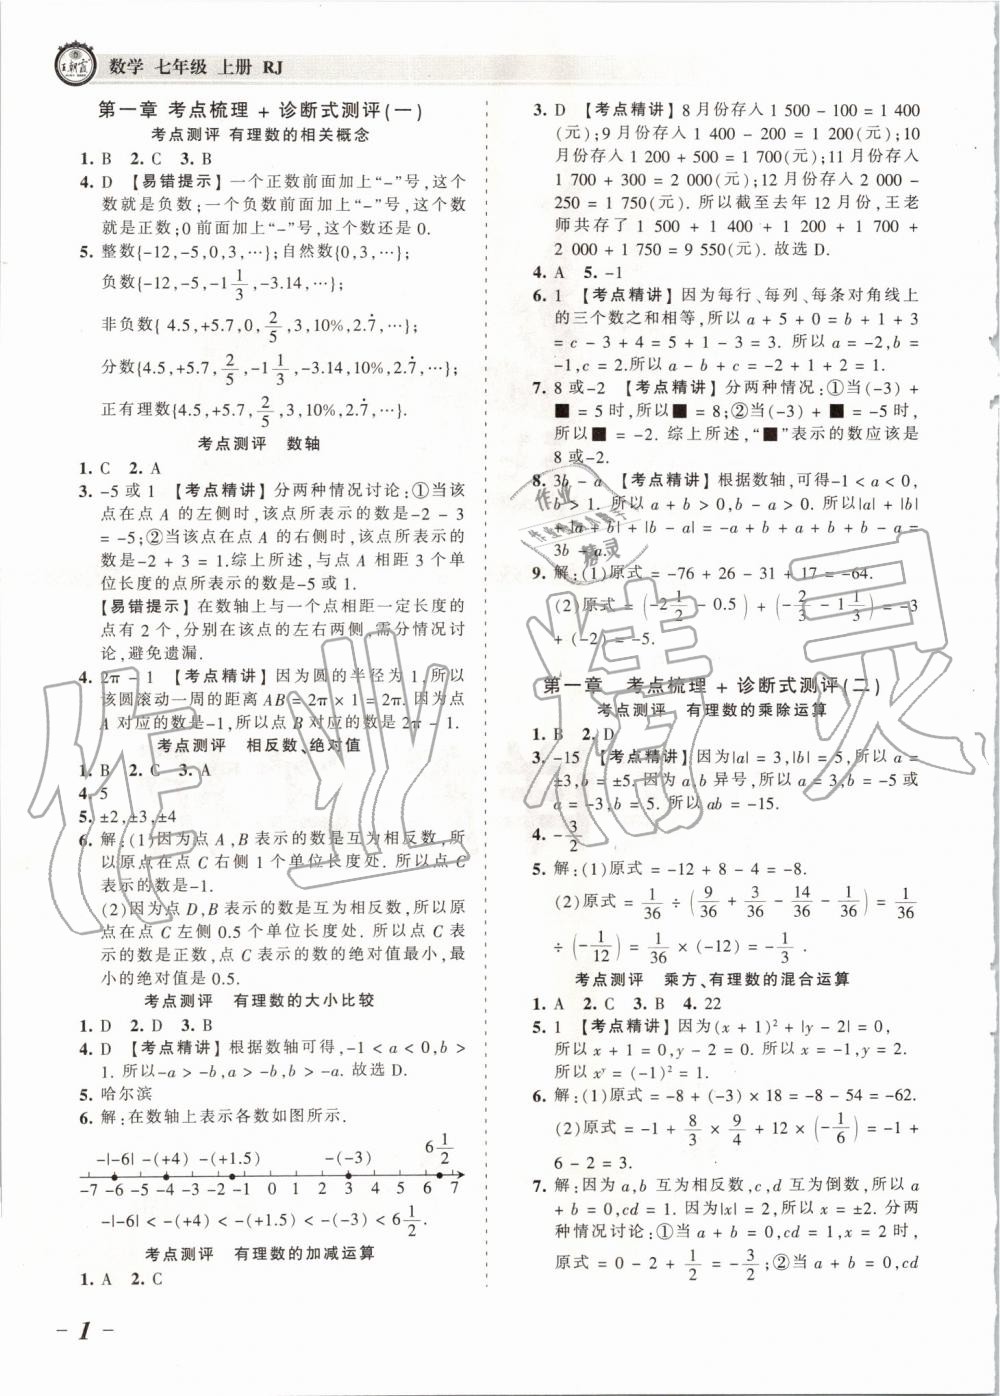 王朝霞
数学 七年级 上册 RJ
第一章 考点梳理 + 诊断式测评(一)
考点测评 有理数的相关概念
1. B 2. C 3. B
4. D 【易错提示】一个正数前面加上“-”号,这个
数就是负数;一个负数前面加上“-”号,这个数
就是正数;0 前面加上“-”号,这个数还是 0.
5. 整数{-12,-5,0,3,…};自然数{0,3,…};
负数{-12,-5,-1 1/3,-3.14,…};
非负数{ 4.5,+5.7,0,2/5,3,10%,2.7̇,…};
分数{4.5,+5.7,2/5,-1 1/3,-3.14,10%,2.7̇,…};
正有理数{4.5,+5.7,2/5,3,10%,2.7̇,…}.
考点测评 数轴
1. C 2. A
3. -5 或 1 【考点精讲】分两种情况讨论:①当该
点在点 A 的左侧时,该点所表示的数是-2 - 3
= -5;②当该点在点 A 的右侧时,该点所表示的
数是-2 + 3 = 1.综上所述,与点 A 相距 3 个单
位长度的点所表示的数是-5 或 1.
【易错提示】在数轴上与一个点相距一定长度的
点有 2 个,分别在该点的左右两侧,需分情况讨
论,避免遗漏.
4. 2π - 1 【考点精讲】因为圆的半径为 1,所以
该圆滚动一周的距离 AB = 2π × 1 = 2π. 因为点
A 对应的数是-1,所以点 B 对应的数是 2π - 1.
考点测评 相反数、绝对值
1. B 2. C 3. A
4. 5
5. ±2,±3,±4
6. 解:(1)因为点 A,B 表示的数是互为相反数,所
以原点在点 C 右侧 1 个单位长度处. 所以点 C
表示的数是-1.
(2)因为点 D,B 表示的数是互为相反数,所以原
点在点 C 左侧 0.5 个单位长度处. 所以点 C 表
示的数是正数,点 C 表示的数的绝对值最小,最
小的绝对值是 0.5.
考点测评 有理数的大小比较
1. D 2. D 3. B
4. D 【考点精讲】根据数轴可得,-1 < a < 0,b >
1. 所以-a > -b,a > -b,b > -a. 故选 D.
5. 哈尔滨
6. 解:在数轴上表示各数如图所示.
-|-6| -(+4) -(+1.5) -(-3) 6 1/2
-7 -6 -5 -4 -3 -2 -1 0 1 2 3 4 5 6 7
-|-6| < -(+4) < -(+1.5) < -(-3) < 6 1/2.
考点测评 有理数的加减运算
1. A 2. C
3. D 【考点精讲】8 月份存入 1 500 - 100 = 1 400
(元);9 月份存入 1 400 - 200 = 1 200(元);10
月份存入 1 200 + 500 = 1 700(元);11 月份存入
1 700 + 300 = 2 000(元);12 月份存入 2 000 -
250 = 1 750(元). 所以截至去年 12 月份,王老
师共存了 1 500 + 1 400 + 1 200 + 1 700 +
2 000 + 1 750 = 9 550(元). 故选 D.
4. A 5. -1
6. 1 【考点精讲】因为每行、每列、每条对角线上
的三个数之和相等,所以 a + 5 + 0 = b + 1 + 3
= c - 3 + 4 = 5 + 1 - 3 = 3. 所以 a = -2,b =
-1,c = 2.所以 a - b + c = -2 + 1 + 2 = 1.
7. 8 或-2 【考点精讲】分两种情况:①当(-3) +
■ = 5 时,所以■ = 8;②当(-3) + ■ = -5 时,
所以■ = -2. 综上所述,“■”表示的数应该是
8 或-2.
8. 3b - a 【考点精讲】根据数轴,可得-1 < a < 0,
b > 1. 所以 a + b > 0,b - a > 0. 所以|a| + |b|
+ |a + b| + |b - a| = -a + b + a + b + b - a =
3b - a.
9. 解:(1)原式 = -76 + 26 - 31 + 17 = -64.
(2)原式 = (-2 1/2 - 0.5) + (-2/3 - 1 1/3) = -3
+ (-2) = -5.
第一章 考点梳理 + 诊断式测评(二)
考点测评 有理数的乘除运算
1. B 2. D
3. -15 【考点精讲】因为|a| = 3,|b| = 5,所以 a =
±3,b = ±5. 因为 a,b 异号,所以 a = 3,b = -5 或
a = -3,b = 5. 所以 ab = -15.
4. -3/2
5. 解:(1)原式 = -12 + 8 - 4 = -8.
(2)原式 = 1/36 ÷ (9/36 + 3/36 - 14/36 - 1/36) = 1/36
÷ (-1/12) = 1/36 × (-12) = -1/3.
考点测评 乘方、有理数的混合运算
1. A 2. C 3. B 4. 22
5. 1 【考点精讲】因为(x + 1)² + |y - 2| = 0,
所以 x + 1 = 0,y - 2 = 0. 所以 x = -1,y = 2.
所以 xʸ = (-1)² = 1.
6. 解:(1)原式 = -8 + (-3) × 18 = -8 - 54 = -62.
(2)原式 = -1 + 8/3 × 9/4 + 12 × (-1/6) = -1 +
6 - 2 = 3.
7. 解:因为 a,b 互为相反数,c,d 互为倒数,所以 a
+ b = 0,cd = 1. 因为|x| = 2,所以 x = ±2. 分两
种情况讨论:①当 a + b = 0,cd = 1,x = 2 时,
原式 = 0 - 2 + 1/2 = -3/2;②当 a + b = 0,cd
- 1 -
作业精灵
作业
精灵